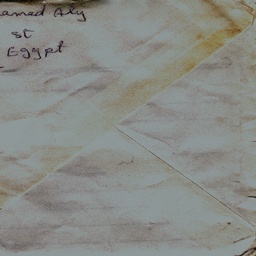 amed Aly
st
Egypt